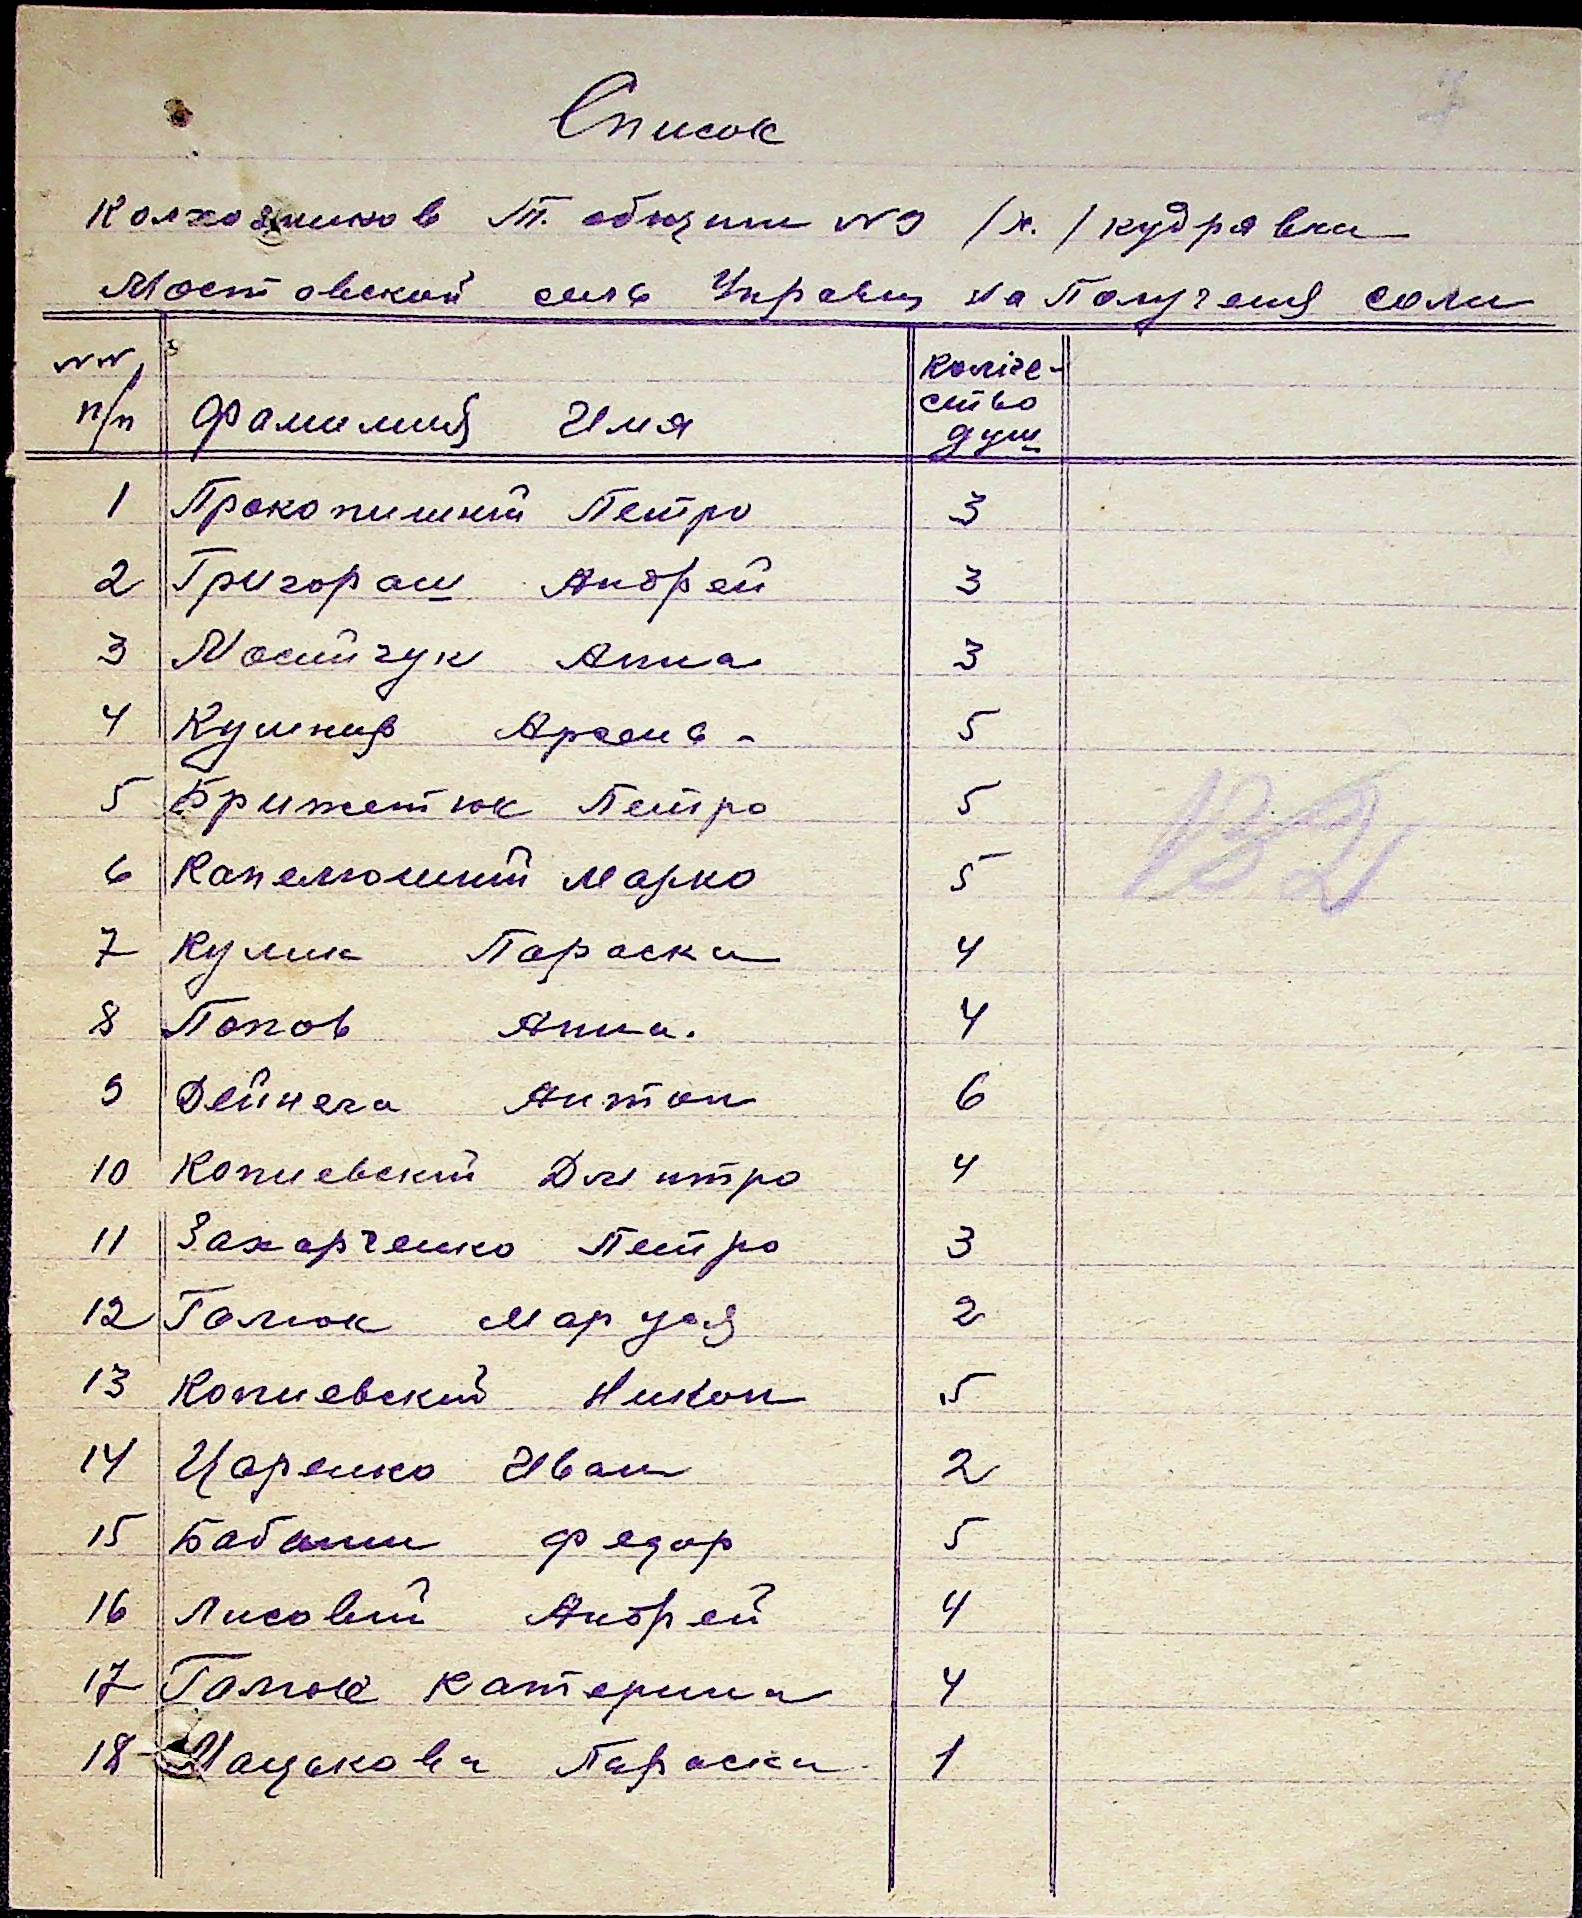 Список
Колхозников Т. общины №9 /х./ кудрявка
Мостовской сель Управы на Получения соли
№№ п/п Фамилия Имя Коліче-ство душ
1 Прокопишный Петро 3
2 Григораш Андрей 3
3 Мосийчук Анна 3
4 Кушнир Арсень - 5
5 Брижетюк Петро 5
6 Капелюшный Марко 5
7 Кулик Параска 4
8 Попов Анна. 4
9 Дейнега Антон 6
10 Копиевский Дмитро 4
11 Захарченко Петро 3
12 Галюк Маруся 2
13 Копиевский Никон 5
14 Царенко Иван 2
15 Бабанин Федор 5
16 Лисовый Андрей 4
17 Галюк Катерина 4
18 Мацакова Параска 1
132